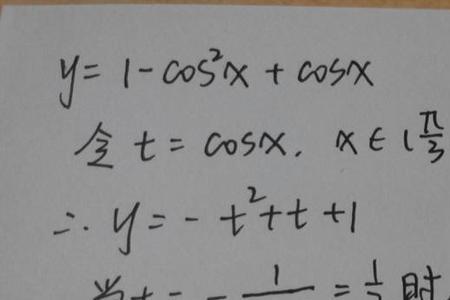 y = 1 - cos²x + cosx
令 t = cosx, x ∈ ( π/3
∴ y = - t² + t + 1
当 t = - 1 = 1 时